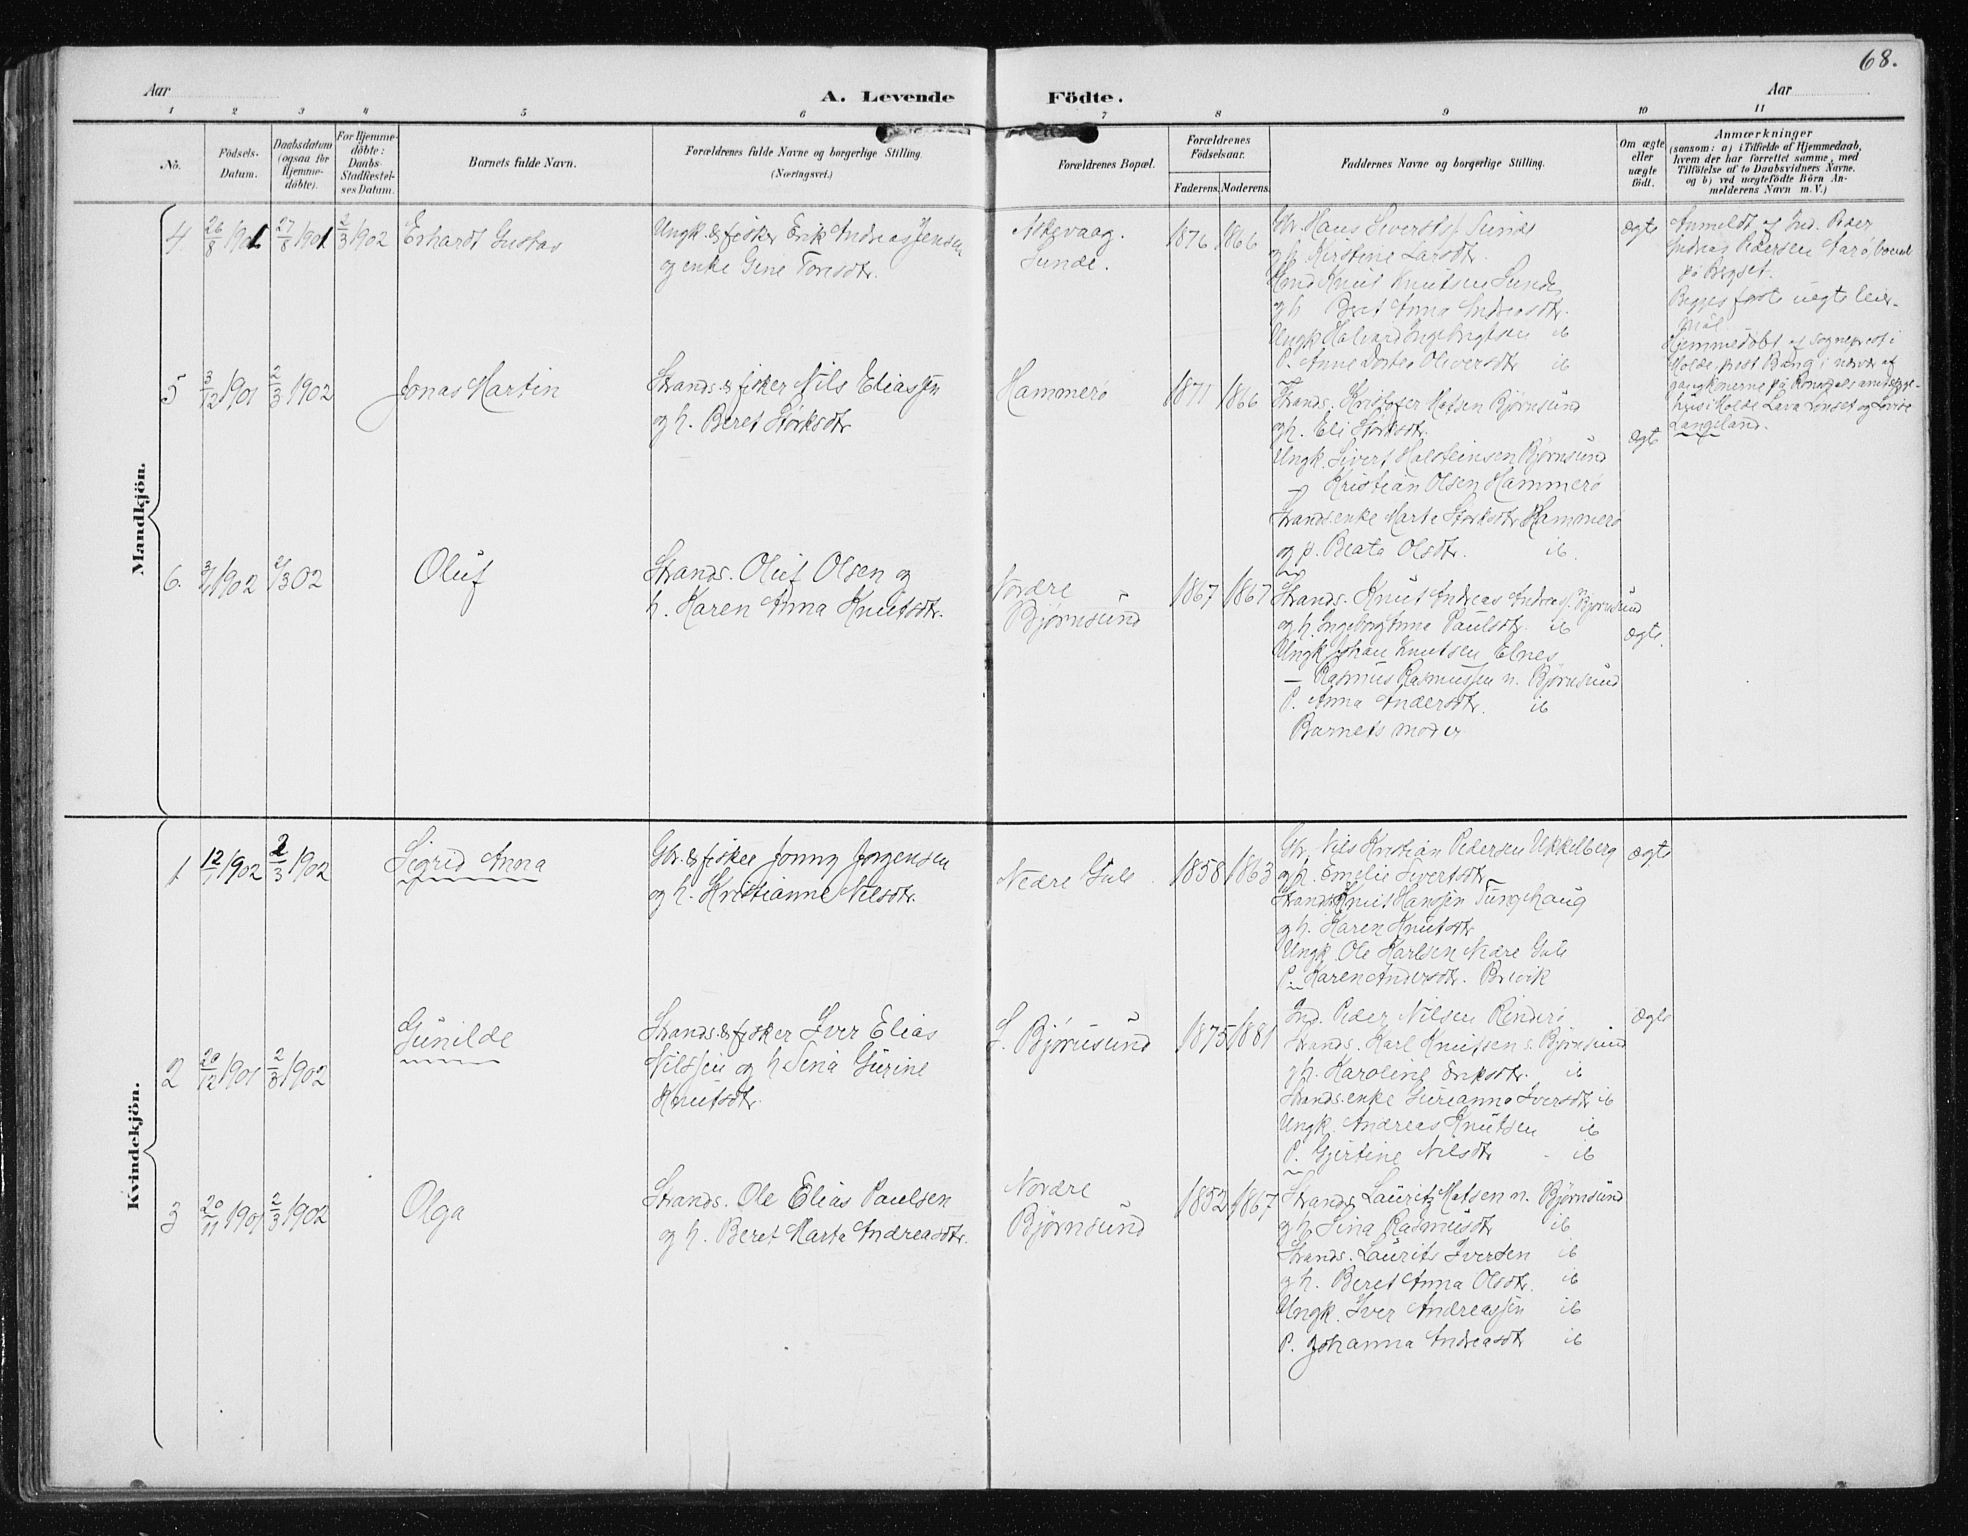 68.
Aar
A. Levende Födte.
Aar
1 2 3 4 5 6 7 8 9 10 11
No.
Födsels-Datum.
Daabsdatum (ogsaa for Hjemmedöbte).
For Hjemmedöbte: Daabs-Stadfestelses Datum.
Barnets fulde Navn.
Forældrenes fulde Navne og borgerlige Stilling.
(Næringsvei.)
Forældrenes Bopæl.
Forældrenes Födselsaar.
Faderens. Moderens.
Faddernes Navne og borgerlige Stilling.
Om ægte eller uægte födt.
Anmærkninger
(saasom: a) i Tilfælde af Hjemmedaab,
hvem der har forrettet samme, med
Tilföielse af to Daabsvidners Navne.
og b) ved uægtefödte Börn Anmelderens Navn m. V.)
Mandkjön.
4 26/8 1901 27/8 1901 2/3 1902 Erhardt Gustav
Ungk. & fisker Erik Andreas Jensen
og enke Gine Tomsdtr.
Sunde.
1876 1866
Gbr. Hans Sivertsf Sunde
og h. Kirstine Larsdtr.
Knut Knutsen Sunde
og h. Beret Anna Andreasdtr.
Ungk Halvard Ingebrigtsen ib
P. Anne Dortea Oliversdtr ib
ægte
Anmeldt af Ind. Peder
Andreas Pedersen
Begges første uægte leiermål
5 3/12 1901 2/3 1902 Jonas Martin
Strands. & fisker Nils Eliassen
og h. Beret Størksdtr
Hammerø
1871 1866
Strands. Kristofer Matsen Bjørnsund
og h. Eli Størksdtr.
Ungk. Sivert Halsteinsen Bjørnsund
— Kristian Olsen Hammerø
Strands.enke Marte Størksdtr Hammerø
og p. Beate Olsdtr. ib.
ægte
Hjemmedøbt af Sogneprest i
Molde, prost Bang, i nærvær af
Langeland.
6. 3/1 1902 2/3 02 Oluf
Strands. Oluf Olsen og
h. Karen Anna Knutsdtr.
Nordre
Bjørnsund
1867 1867
Strands. Knut Andreas Andreas. n. Bjørnsund
og h. Ingeborg Anna Paulsdtr. ib
Ungk Johan Knutsen Elnes
— Rasmus Rasmussen n. Bjørnsund
P. Anna Andersdtr. ib
Barnets moder
ægte.
Kvindekjön.
1 12/1 1902 2/3 1902 Sigrid Anna
Gbr. & fisker Jonny Jørgensen
og h. Kristianne Nilsdtr.
Nedre Gule
1858 1863
Gbr. Nils Kristian Pedersen Ukkelberg
og h. Emelie Sivertsdtr
Strands Knut Hansen Tungehaug
og h. Karen Knutsdtr
Ungk. Ole Karlsen Nedre Gule
P. Karen Andersdtr. Brevik
ægte
2 20/12 1901 2/3 1902 Gunilde
Strands. & fisker Iver Elias
Nilssen og h. Sina Gurine
Knutsdtr.
S. Bjørnsund
1875 1881
Ind. Peder Nilsen Rinderø
Strands. Karl Knutsen s. Bjørnsund
og h. Karoline Eriksdtr. ib
Strands.enke Gurianna Iversdtr ib
Ungk. Andreas Knutsen ib
P. Gjertine Nilsdtr ib
ægte
3 20/11 1901 2/3 1902 Olga
Strands. Ole Elias Paulsen
og h. Beret Marta Andreasdtr.
Nordre
Bjørnsund
1852 1867
Strands. Lauritz Matsen n. Bjørnsund
og h. Sina Rasmusdtr ib
Strands. Laurits Iversen ib
og h. Beret Anna Olsdtr. ib
Ungk. Iver Andreassen ib
P. Johanna Andreasdtr ib